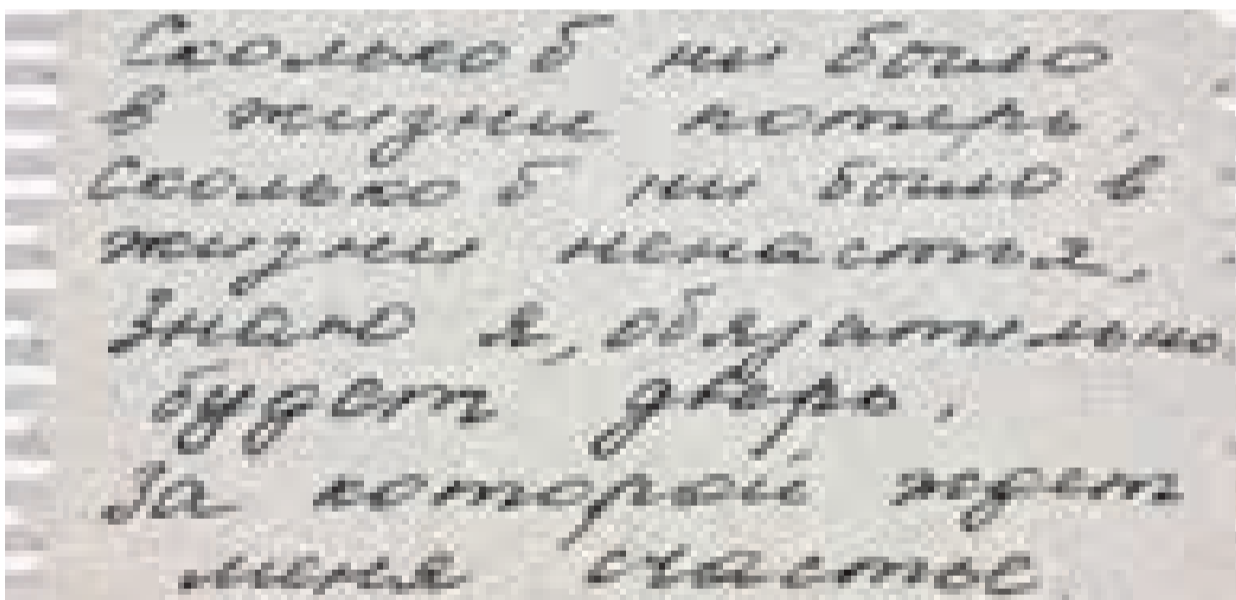 Сколько б ни было
в жизни потерь,
Сколько б ни было в
жизни ненастья,
Знаю я, обязательно
будет дверь,
За которой ждет
меня счастье